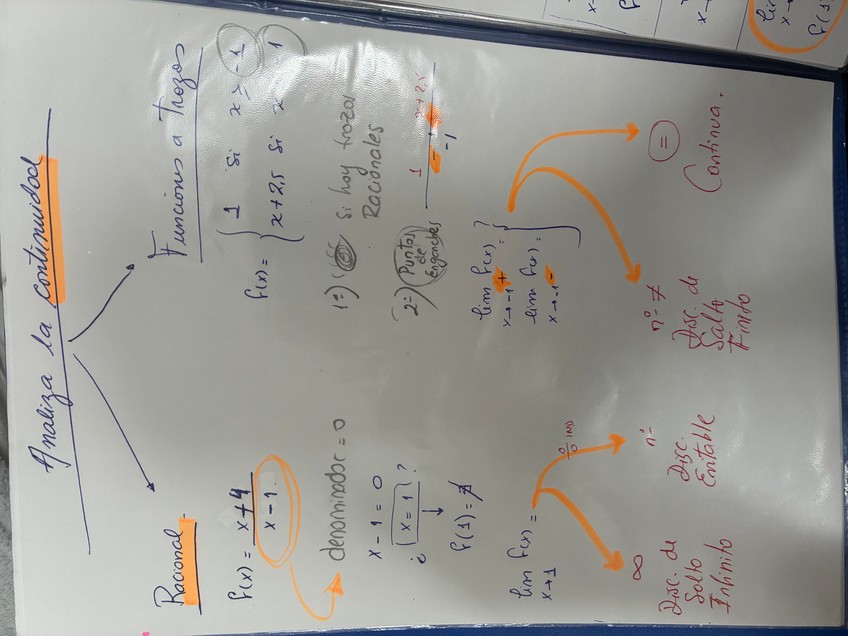 Analiza la continuidad
Racional
f(x) = x+4
x-1
denominador = 0
x - 1 = 0
¿ x = 1 ?
↓
f(1) = ∄
lim f(x) =
x→1
∞
Disc. de
Salto
Infinito
0/0 IND
nº
Disc.
Evitable
Funciones a trozos
f(x) = { 1 si x > -1
x+2,5 si x -1
1º) Si hay trozos
Racionales
2º) Puntos
de
Enganches
1 - + x+2,5
-1
lim f(x) = ?
x→-1+
lim f(x) =
x→-1-
nº ≠
Disc. de
Salto
Finito
=
Continua.
lim
x→
f(1)